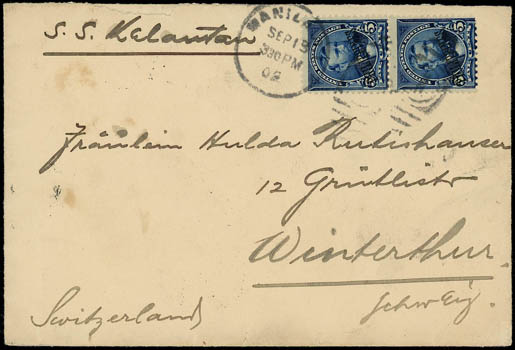 S. S. Kelantan
MANILA
SEP 15
330 PM
02
Fräulein Hulda Rutishauser
12 Grütlistr
Winterthur.
Schweiz.
Switzerland